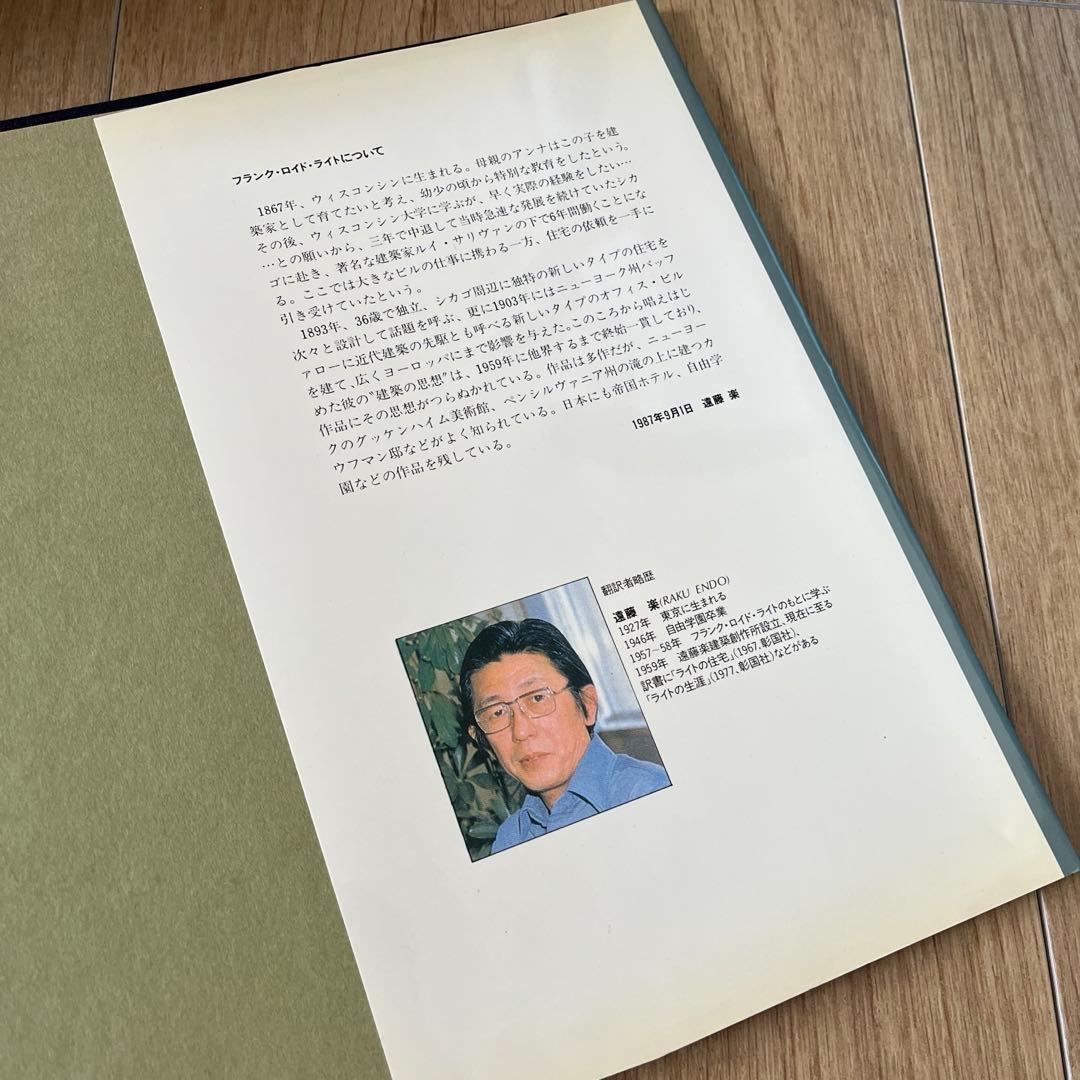 フランク・ロイド・ライトについて
1867年、ウィスコンシンに生まれる。母親のアンナはこの子を建
築家として育てたいと考え、幼少の頃から特別な教育をしたという。
その後、ウィスコンシン大学に学ぶが、早く実際の経験をしたい…
…との願いから、三年で中退して当時急速な発展を続けていたシカ
ゴに赴き、著名な建築家ルイ・サリヴァンの下で6年間働くことにな
る。ここでは大きなビルの仕事に携わる一方、住宅の依頼を一手に
引き受けていたという。
1893年、36歳で独立、シカゴ周辺に独特の新しいタイプの住宅を
次々と設計して話題を呼ぶ、更に1903年にはニューヨーク州バッフ
ァローに近代建築の先駆とも呼べる新しいタイプのオフィス・ビル
を建て、広くヨーロッパにまで影響を与えた。このころから唱えはじ
めた彼の〝建築の思想〟は、1959年に他界するまで終始一貫しており、
作品にその思想がつらぬかれている。作品は多作だが、ニューヨー
クのグッケンハイム美術館、ペンシルヴァニア州の滝の上に建つカ
ウフマン邸などがよく知られている。日本にも帝国ホテル、自由学
園などの作品を残している。
1987年9月1日 遠藤 楽
翻訳者略歴
遠藤 楽(RAKU ENDO)
1927年 東京に生まれる
1946年 自由学園卒業
1957～58年 フランク・ロイド・ライトのもとに学ぶ
1959年 遠藤楽建築創作所設立、現在に至る
訳書に「ライトの住宅」(1967、彰国社)、
「ライトの生涯」(1977、彰国社)などがある